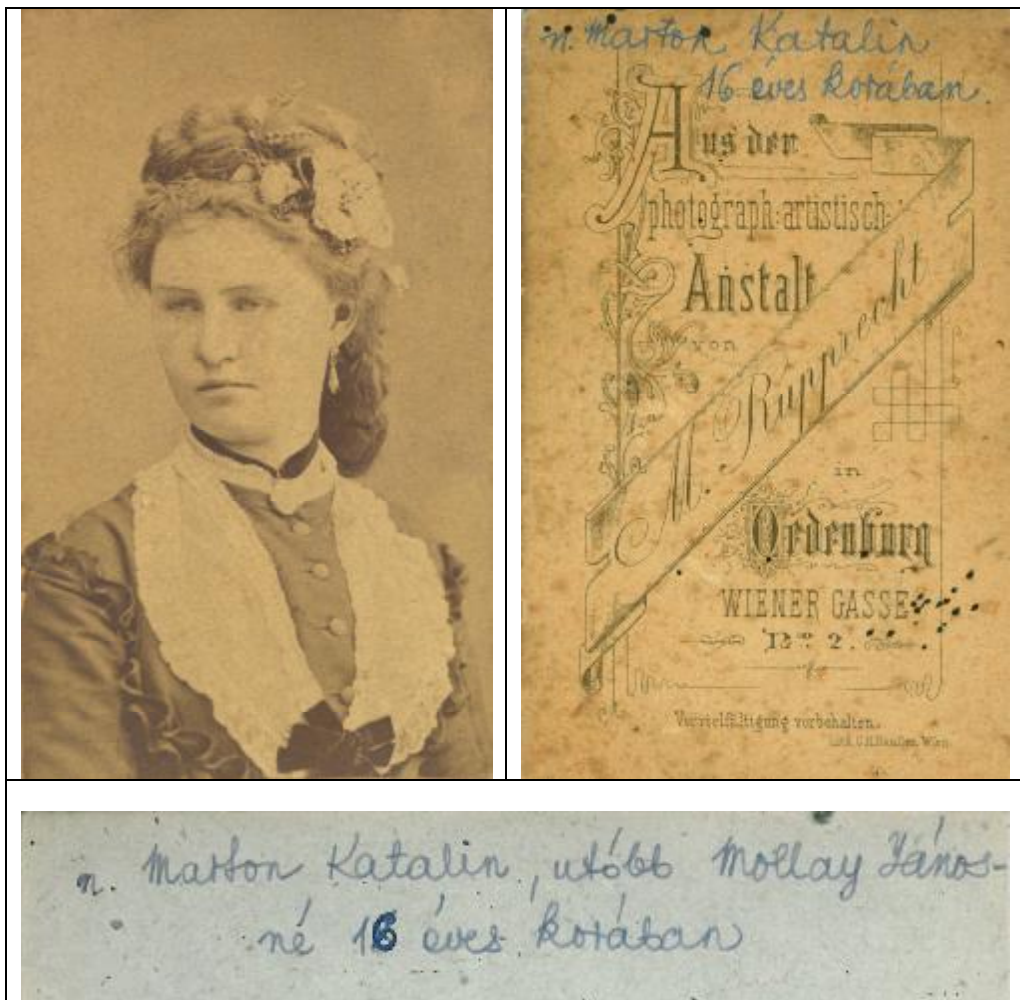 n. Marton Katalin
16 éves korában.
Aus der
photograph:artistisch:
Anstalt
von
M. Rupprecht
in
Oedenburg
WIENER GASSE
No. 2.
Vervielfältigung vorbehalten.
Wien
n. Marton Katalin, utóbb Mollay János-
né 16 éves korában